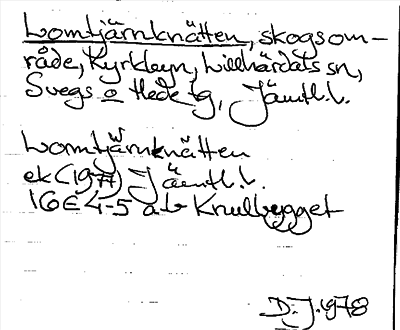 Lomtjärnknätten, skogsom-
råde, Kyrkbyn, Lillhärdals sn,
Svegs o Hede tg, Jämtl. l.
Lomtjärnknätten
ek (1971) Jämtl. l.
16E 4-5 a-b Knulbygget
D. J. 1978